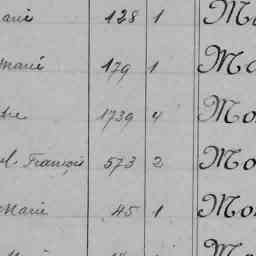 arie 128 1 Ma
marie 179 1 Ma
dre 1739 4 Mo
l. François 573 2 Mo
Marie 45 1 Mo